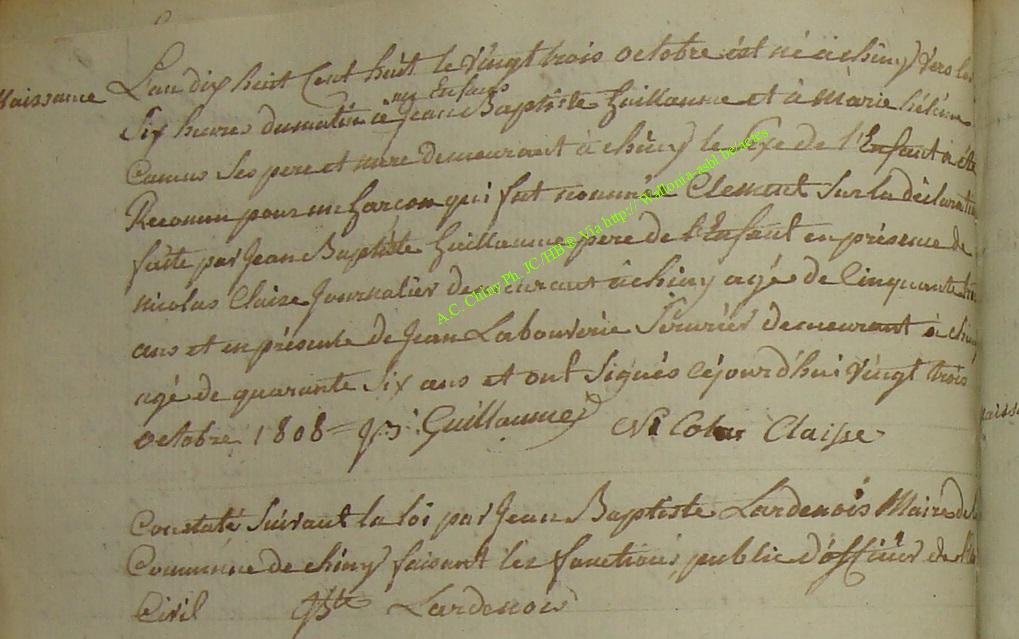 Naissance
L'an dix huit Cent huit le Vingt trois octobre est né a chiny Vers les
un Enfant
Six heures du matin a Jean Baptiste Guillaume et a Marie hélene
Camus Ses pere et mere demeurant a chiny le Sexe de l'Enfant a été
Reconnu pour un Garcon qui fut nommé Clement Sur la déclaration
faite par Jean Baptiste Guillaume pere de l'Enfant en présence de
nicolas Claise Journalier demeurant a chiny agé de Cinquante
ans et en présente de Jean Labouverie Serurier demeurant a chiny
agé de quarante Six ans et ont Signés cejourd'hui Vingt trois
octobre 1808 = JB: Guillaume Nicolas Claisse
Constaté Suivant la loi par Jean Baptiste Lardenois Maire de la
Commune de chiny faisant les fonctions public d'officier de
Civil JBte Lardenois
A.C. Chiny Ph. JC/HB ® Via http:// Wallonia-asbl.be/actes